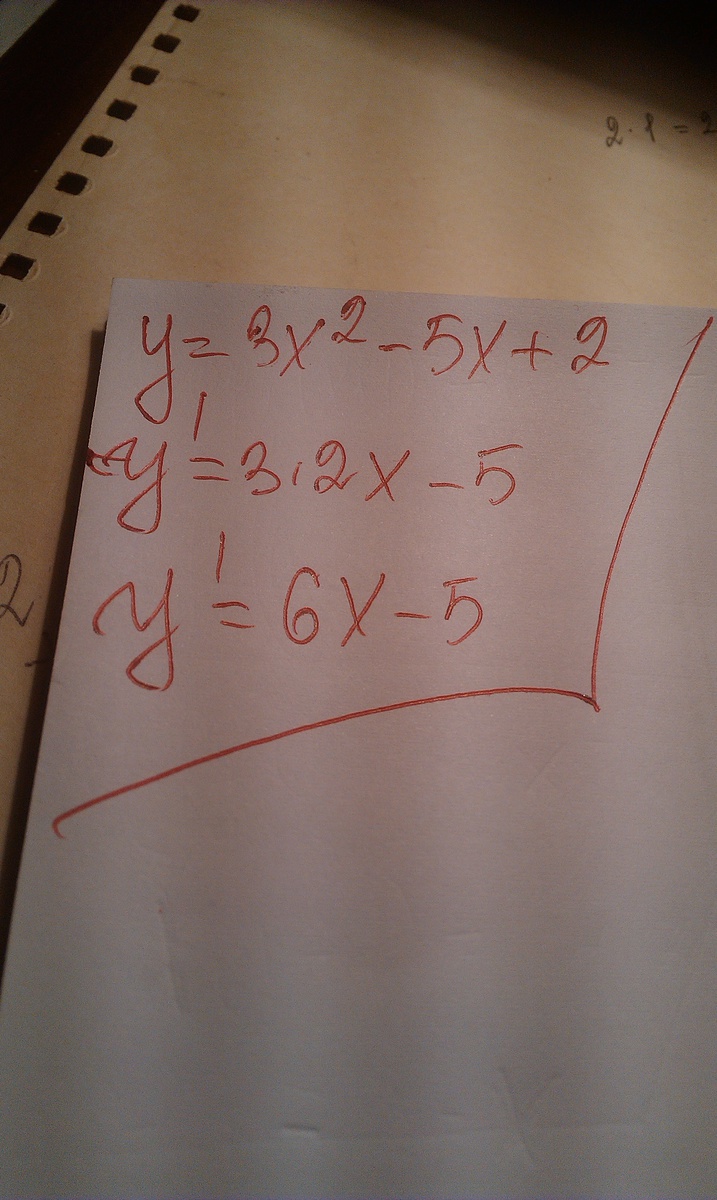 2·1=2
y=3x²-5x+2
y'=3·2x-5
y'=6x-5
2